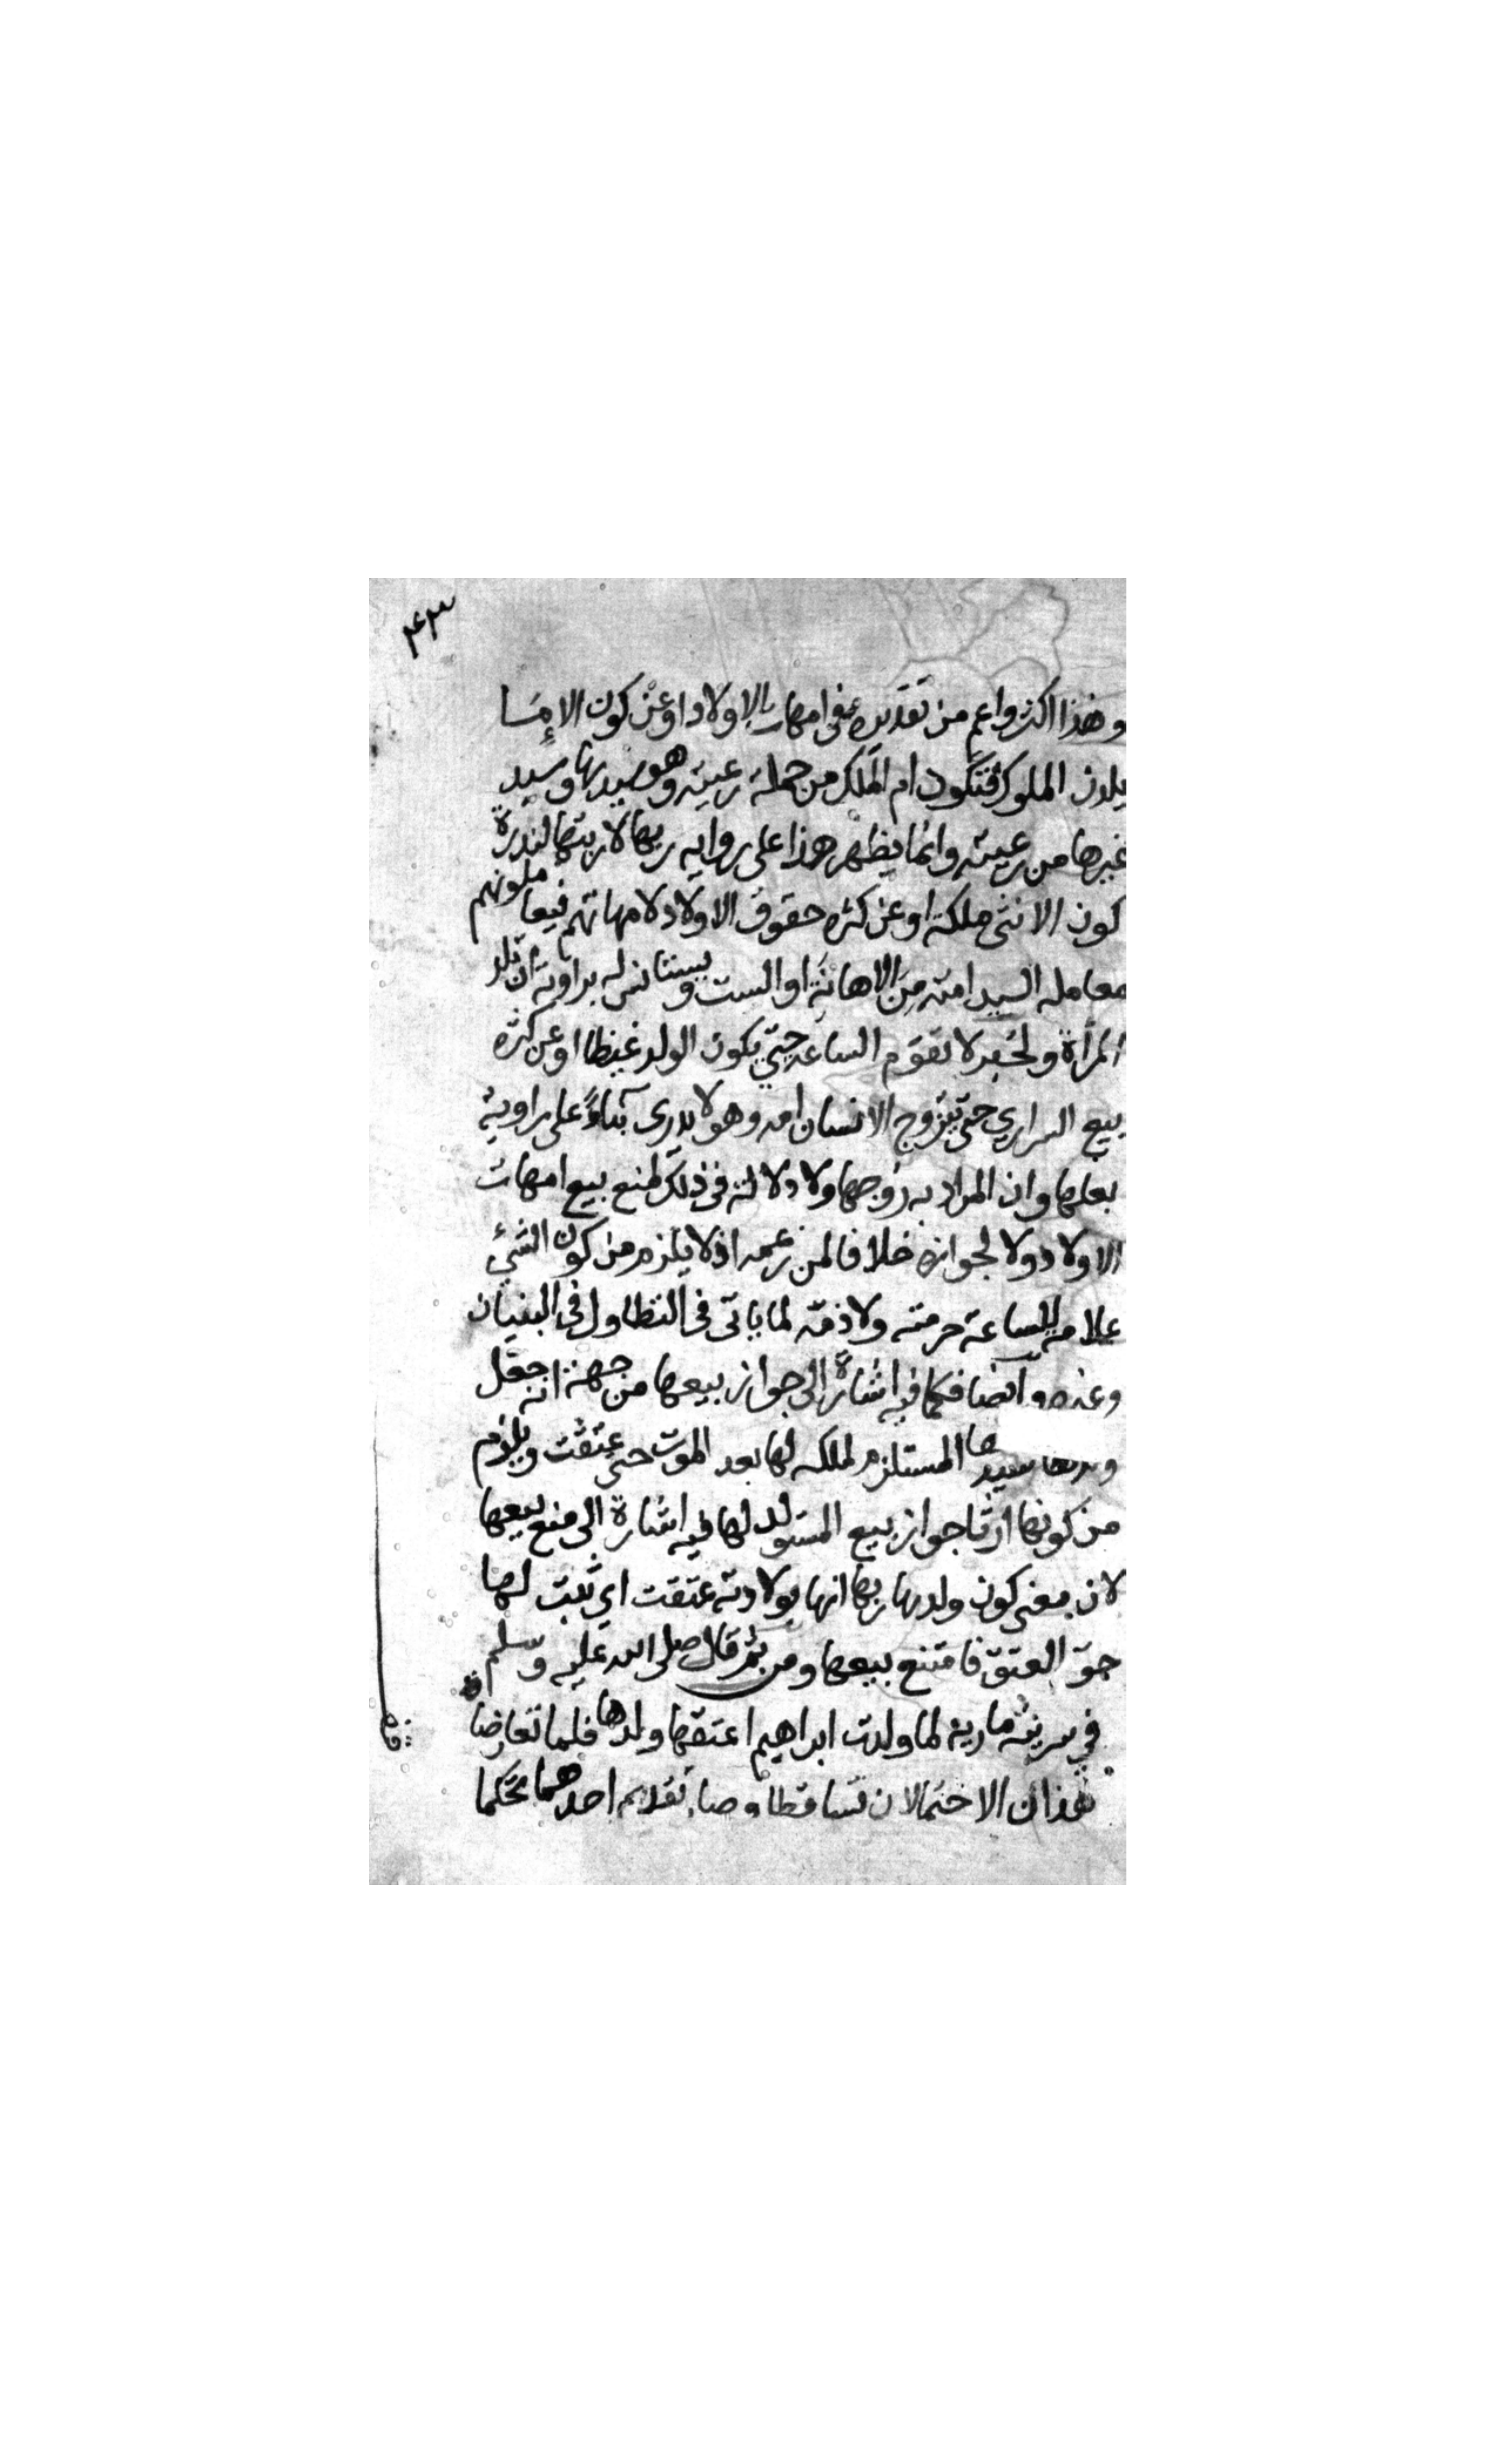 ٤٣
وهذا اكثر واعم من تقديره في امهات الاولاد او عن كون الاما
يلدن الملوك فتكون ام الملك من جملة رعيته وهو سيدها وسيد
غيرها من رعيته وانما يظهر هذا على روايه ربها لا ربتها لندرة
كون الانثى ملكة او عن كثره حقوق الاولاد لامهاتهم فيعاملونهم
معامله السيد امته من الاهانة او السب ويستانس له برواية ان تلد
المرأة ولخبر لا تقوم الساعه حتى يكون الولد غيظا او عن كثره
بيع السراري حتى يتزوج الانسان امه وهو لا يدرى بناءً على راوية
بعلها وان المراد به زوجها ولا دلالة في ذلك لمنع بيع امهات
الاولاد ولا لجوازه خلافا لمن زعمه اذ لا يلزم من كون الشيئ
علامه للساعة حرمته ولا ذمه لما ياتى فى التطاول فى البنيان
وغيره وايضا فكما فيه اشارة الى جواز بيعها من جهة انه جعل
سيدها المستلزم لملكه لها بعد الموت حتى عتقت ويلزم
من كونها ارثا جواز بيع المستولد لها فيه اشارة الى منع بيعها
لان معنى كون ولدها ربها انها بولادته عتقت اي ثبت لها
حق العتق فامتنع بيعها ومن ثم قال صلى الله عليه وسلم
في سريته مارية لما ولدت ابراهيم اعتقها ولدها فلما تعارضا
هذان الاحتمالان تساقطا وصار تقديم احدهما تحكما